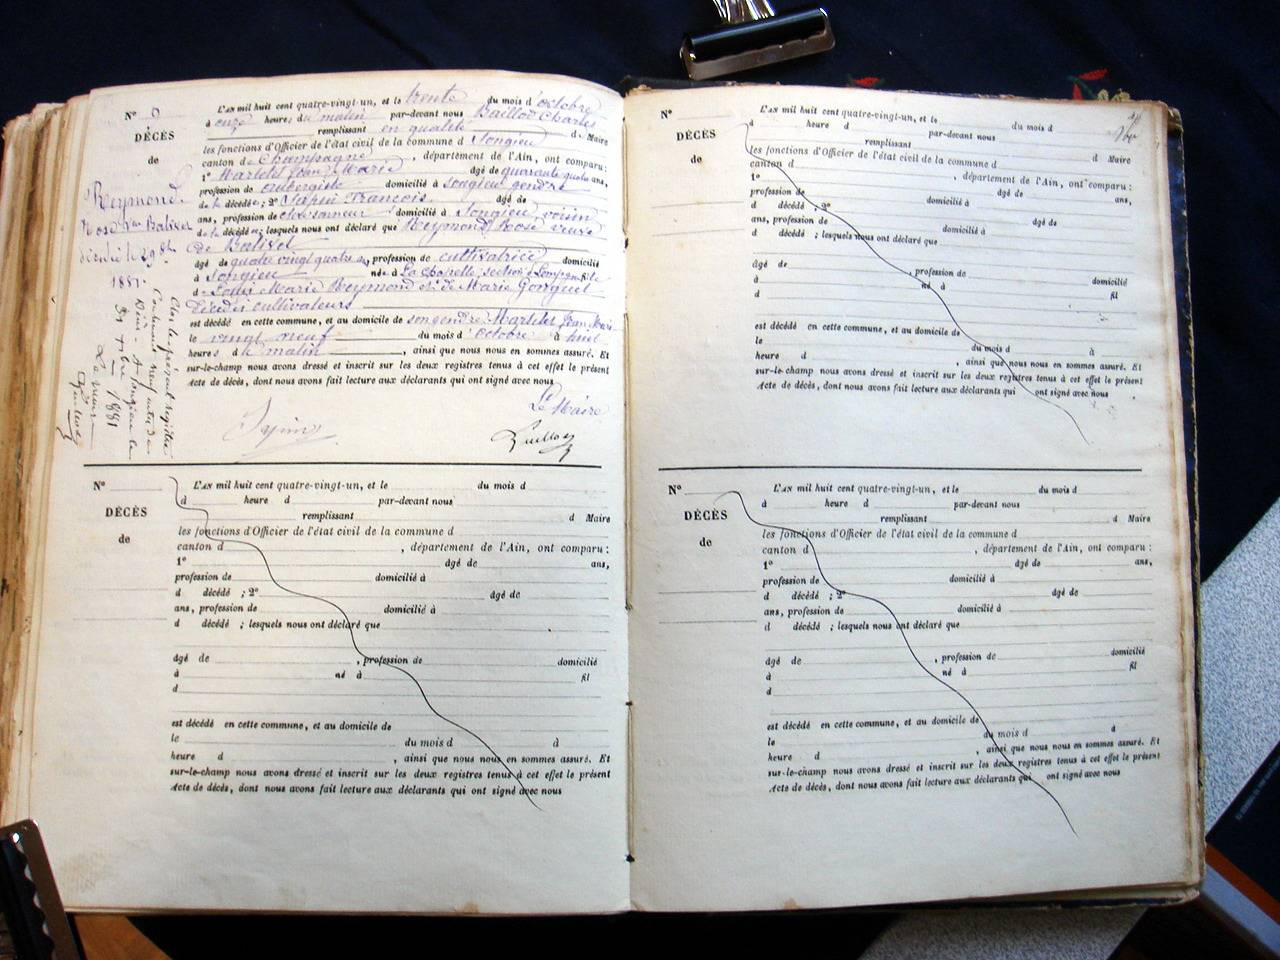 N° 0
DÉCÈS
de
Reymond
Rose Vve Balivet
décédée le 29 8bre
1881.
L'AN mil huit cent quatre-vingt-un, et le trente du mois d'octobre
à onze heures du matin par-devant nous Baillod Charles
remplissant en qualité de Maire
les fonctions d'Officier de l'état civil de la commune d Songieu
canton de Champagne, département de l'Ain, ont comparu:
1° Martelet Jean Marie âgé de quarante quatre ans,
profession de aubergiste domicilié à Songieu gendre
de la décédée; 2° Sapin François âgé de
ans, profession de domicilié à Songieu, voisin
de la décédée; lesquels nous ont déclaré que Reymond Rose veuve
de Balivet
âgé de quatre vingt quatre ans, profession de cultivatrice domicilié
à Songieu née à La Chapelle, section de fille
de Louis Marie Reymond et de Marie
décédés cultivateurs
est décédé en cette commune, et au domicile de son gendre Martelet Jean Marie
le vingt neuf du mois d'octobre à huit
heures du matin, ainsi que nous nous en sommes assuré. Et
sur-le-champ nous avons dressé et inscrit sur les deux registres tenus à cet effet le présent
Acte de décès, dont nous avons fait lecture aux déclarants qui ont signé avec nous
Le Maire
Clos le présent registre
31 Xbre 1881
Le Maire
N°
DÉCÈS
de
L'AN mil huit cent quatre-vingt-un, et le du mois d
à heure d par-devant nous
remplissant d Maire
les fonctions d'Officier de l'état civil de la commune d
canton d , département de l'Ain, ont comparu:
1° âgé de ans,
profession de domicilié à
d décédé ; 2° âgé de
ans, profession de domicilié à
d décédé ; lesquels nous ont déclaré que
âgé de , profession de domicilié
à né à fil
d
est décédé en cette commune, et au domicile de
le du mois d à
heure d , ainsi que nous nous en sommes assuré. Et
sur-le-champ nous avons dressé et inscrit sur les deux registres tenus à cet effet le présent
Acte de décès, dont nous avons fait lecture aux déclarants qui ont signé avec nous
N°
DÉCÈS
de
L'AN mil huit cent quatre-vingt-un, et le du mois d
à heure d par-devant nous
remplissant d Maire
les fonctions d'Officier de l'état civil de la commune d
canton d , département de l'Ain, ont comparu:
1° âgé de ans,
profession de domicilié à
d décédé ; 2° âgé de
ans, profession de domicilié à
d décédé ; lesquels nous ont déclaré que
âgé de , profession de domicilié
à né à fil
d
est décédé en cette commune, et au domicile de
le du mois d à
heure d , ainsi que nous nous en sommes assuré. Et
sur-le-champ nous avons dressé et inscrit sur les deux registres tenus à cet effet le présent
Acte de décès, dont nous avons fait lecture aux déclarants qui ont signé avec nous
N°
DÉCÈS
de
L'AN mil huit cent quatre-vingt-un, et le du mois d
à heure d par-devant nous
remplissant d Maire
les fonctions d'Officier de l'état civil de la commune d
canton d , département de l'Ain, ont comparu:
1° âgé de ans,
profession de domicilié à
d décédé ; 2° âgé de
ans, profession de domicilié à
d décédé ; lesquels nous ont déclaré que
âgé de , profession de domicilié
à né à fil
d
est décédé en cette commune, et au domicile de
le du mois d à
heure d , ainsi que nous nous en sommes assuré. Et
sur-le-champ nous avons dressé et inscrit sur les deux registres tenus à cet effet le présent
Acte de décès, dont nous avons fait lecture aux déclarants qui ont signé avec nous